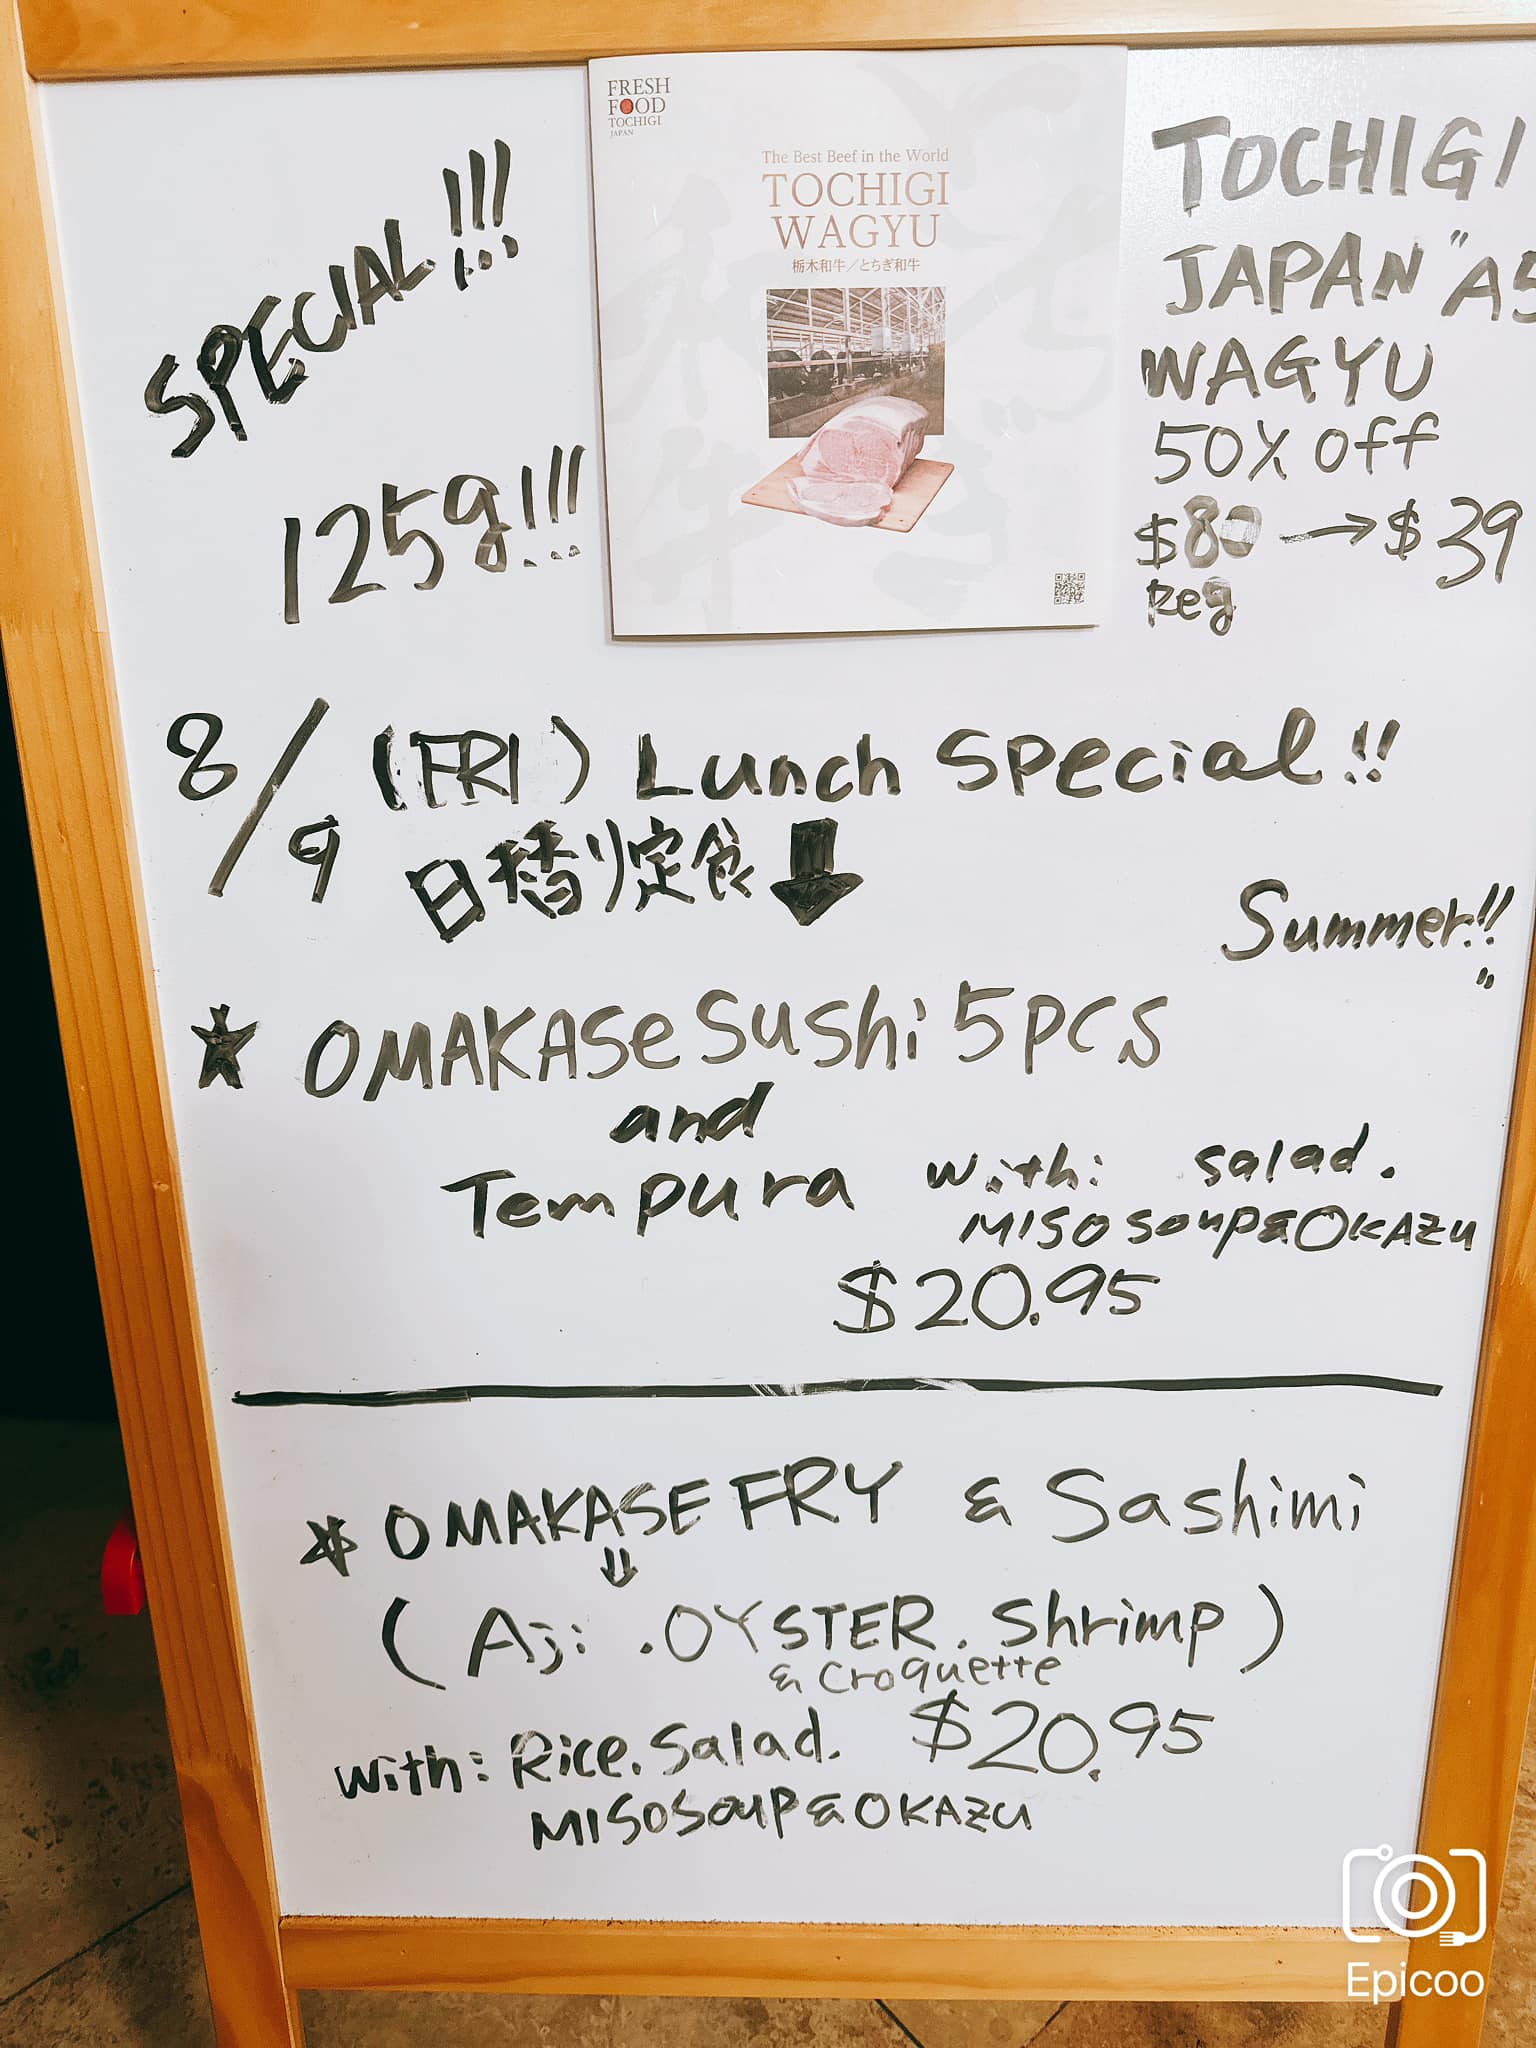 SPECIAL!!!
125g!!!
FRESH
FOOD
TOCHIGI
JAPAN
The Best Beef in the World
TOCHIGI
WAGYU
栃木和牛／とちぎ和牛
TOCHIGI
JAPAN "A5
WAGYU
50% off
$80 → $39
Reg
8/9 (FRI) Lunch Special!!
日替り定食 ⬇
Summer!!
★ OMAKASe Sushi 5pcs
and
Tempura with: Salad.
MISO Soup & OKAZU
$20.95
☆ OMAKASE FRY & Sashimi
⇓
(Aji. OYSTER. Shrimp)
& Croquette
$20.95
with: Rice. Salad.
MISO Soup & OKAZU
Epicoo